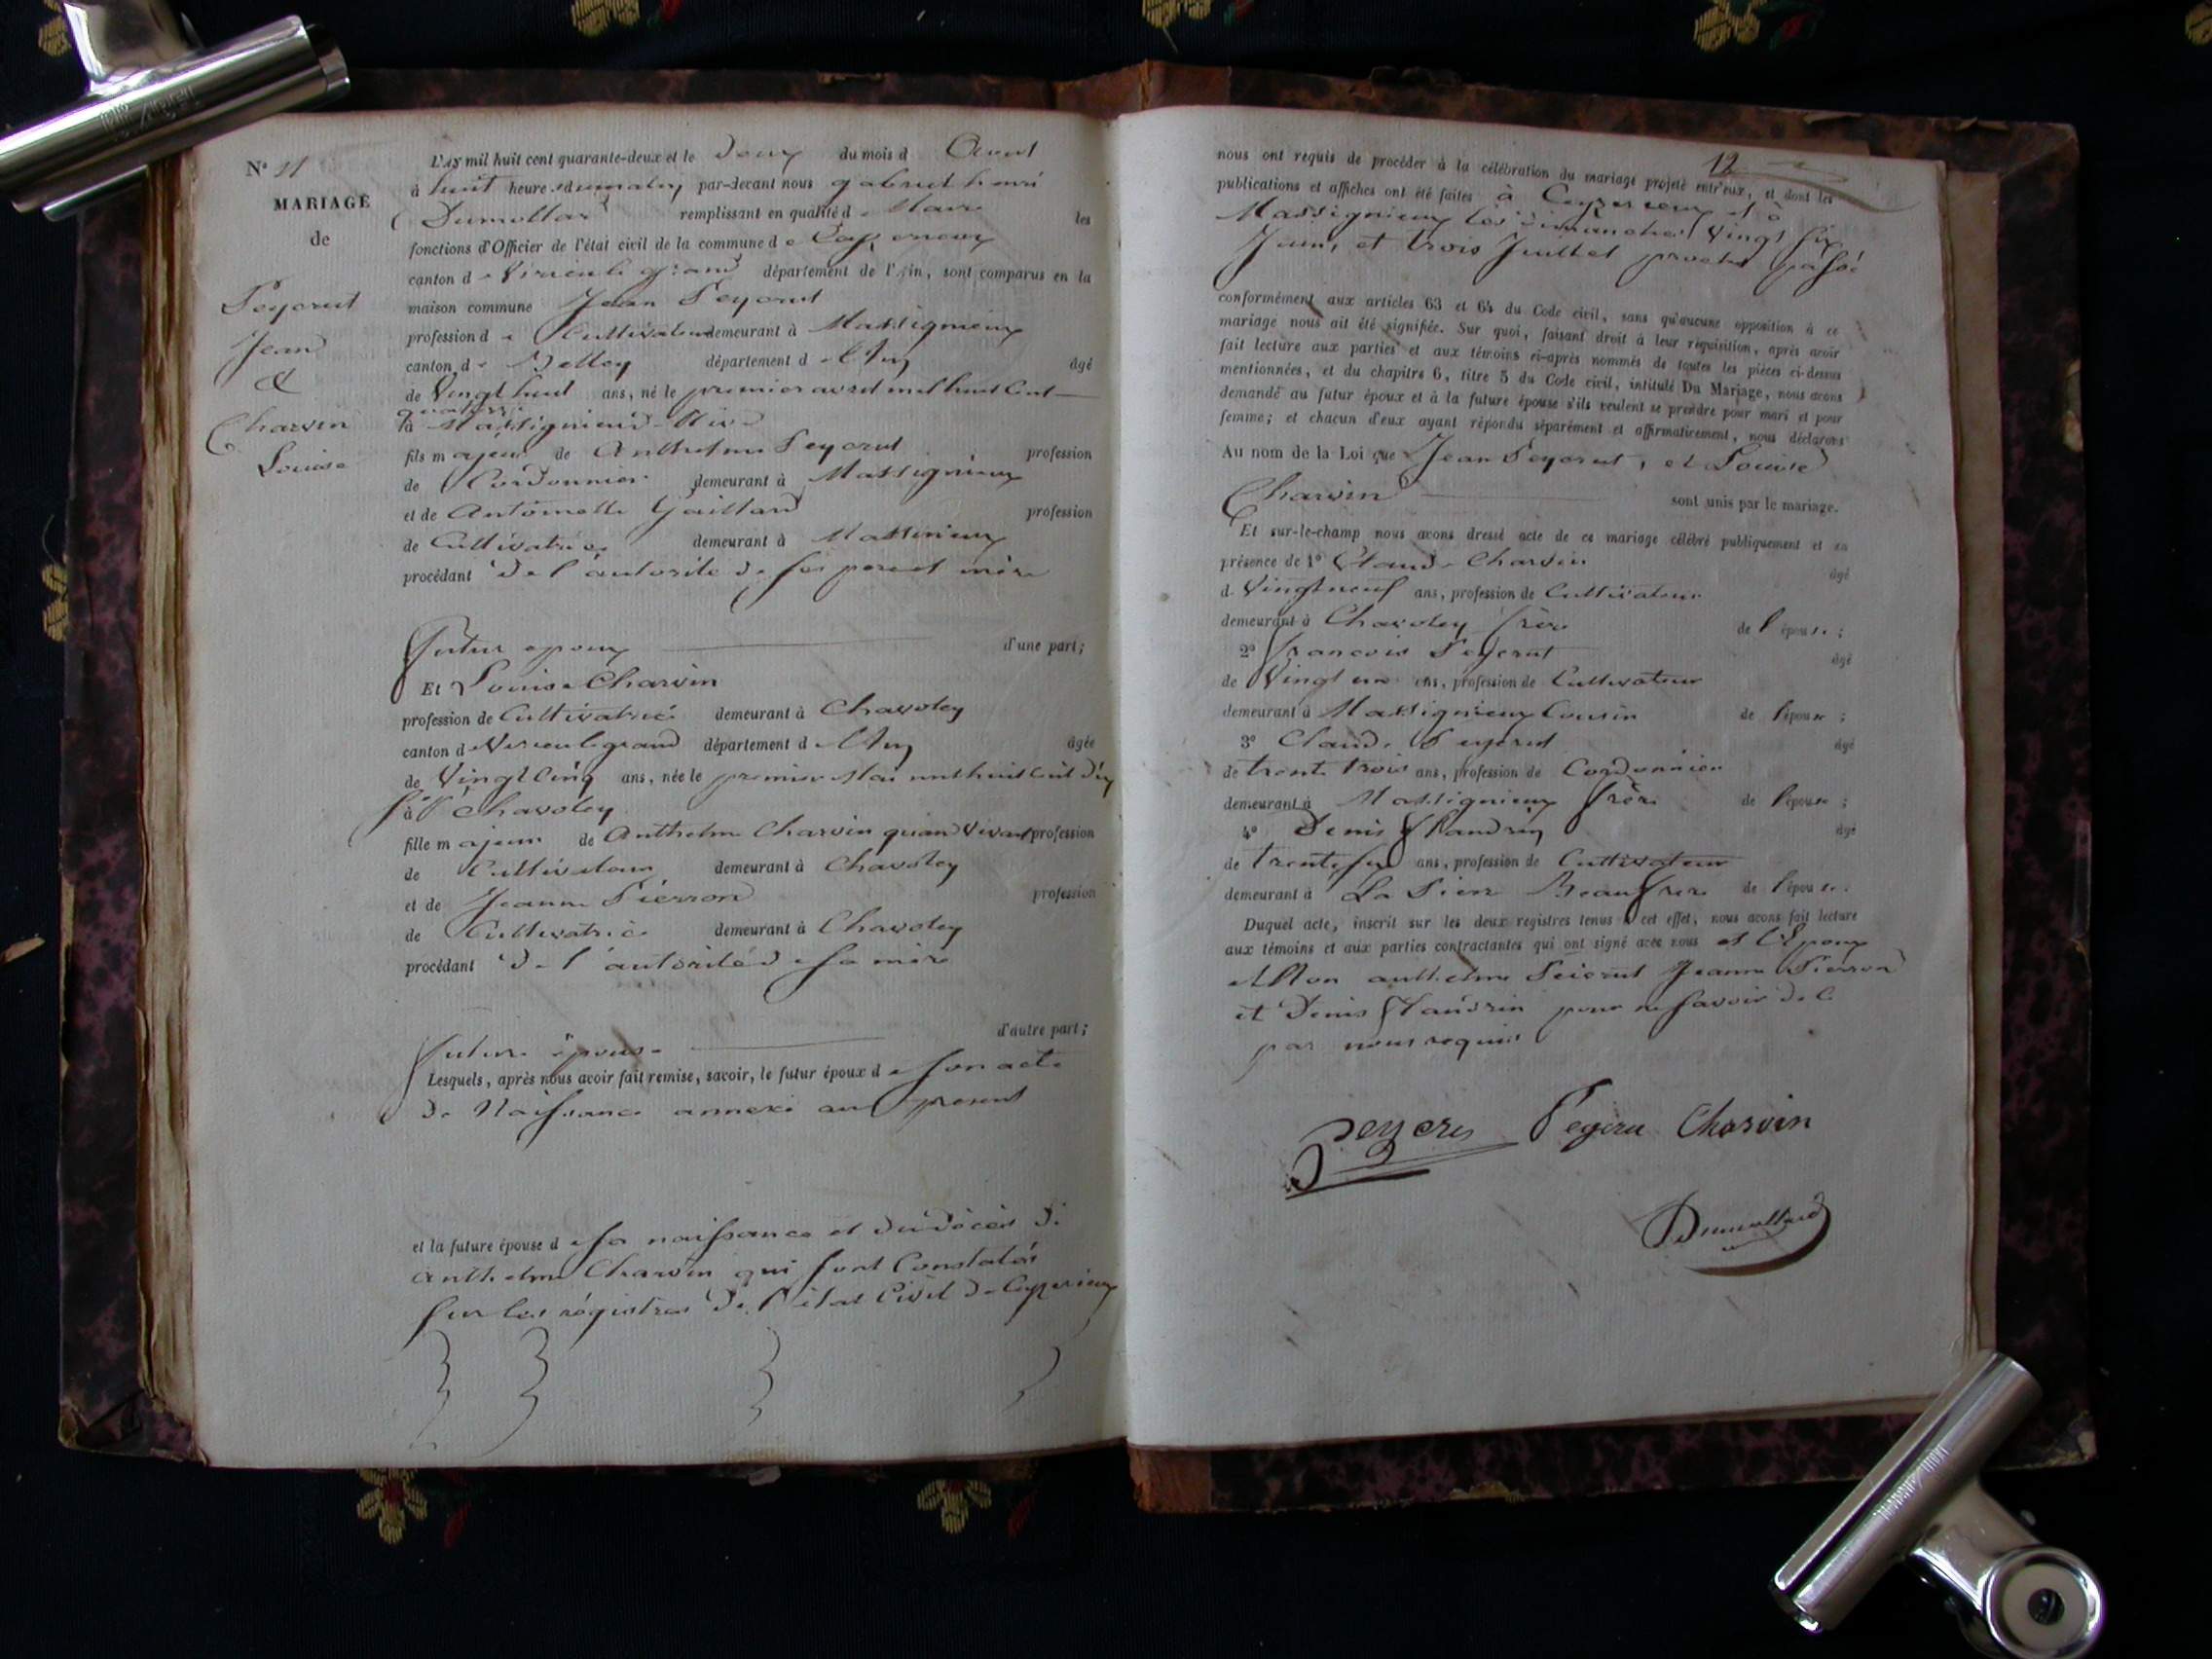 N° 11
MARIAGE
de
Peyerut
Jean
&
Charvin
Louise
L'an mil huit cent quarante-deux et le deux du mois d Aout
à huit heure du matin, par-devant nous gabriel henri
Dumollard remplissant en qualité de Maire les
fonctions d'Officier de l'état civil de la commune de Ceyzerieux
canton de Virieu le grand département de l'Ain, sont comparus en la
maison commune Jean Peyerut
profession de Cultivateur demeurant à Massignieux
canton de Belley département de l'Ain âgé
de Vingt huit ans, né le premier avril mil huit Cent
quatorze
à Massignieux
fils majeur de Anthelme Peyerut profession
de Cordonnier demeurant à Massignieux
et de Antoinette Gaillard profession
de Cultivatrice demeurant à Massinieux
procédant de l'autorité de ses pere et mère
futur epoux d'une part;
Et Louise Charvin
profession de Cultivatrice demeurant à Chavoley
canton de Virieu le grand département de l'Ain âgée
de Vingt Cinq ans, née le premier Mai mil huit Cent dix
sept à Chavoley
fille majeure de Anthelme Charvin quand vivant profession
de Cultivateur demeurant à Chavoley
et de Jeanne Pierron profession
de Cultivatrice demeurant à Chavoley
procédant de l'autorité de sa mère
future épouse d'autre part;
Lesquels, après nous avoir fait remise, savoir, le futur époux de son acte
de Naissance annexé au present
et la future épouse de sa naissance et du décès de
Anthelme Charvin qui sont Constatés
sur les régistres de l'état Civil de Ceyzerieux
12
nous ont requis de procéder à la célébration du mariage projeté entr'eux, et dont les
publications et affiches ont été faites à Ceyzerieux et à
Massignieux les dimanches Vingt six
Juin, et trois Juillet passé
conformément aux articles 63 et 64 du Code civil, sans qu'aucune opposition à ce
mariage nous ait été signifiée. Sur quoi, faisant droit à leur réquisition, après avoir
fait lecture aux parties et aux témoins ci-après nommés de toutes les pièces ci-dessus
mentionnées, et du chapitre 6, titre 5 du Code civil, intitulé Du Mariage, nous avons
demandé au futur époux et à la future épouse s'ils veulent se prendre pour mari et pour
femme; et chacun d'eux ayant répondu séparément et affirmativement, nous déclarons
Au nom de la Loi que Jean Peyerut, et Louise
Charvin sont unis par le mariage.
Et sur-le-champ nous avons dressé acte de ce mariage célébré publiquement et en
présence de 1° Claude Charvin âgé
d. Vingt neuf ans, profession de Cultivateur
demeurant à Chavoley frère de l'épouse;
2° francois Peyerut âgé
de Vingt un ans, profession de Cultivateur
demeurant à Massignieux Cousin de l'époux;
3° Claude Peyerut âgé
de trente trois ans, profession de Cordonnier
demeurant à Massignieux frère de l'époux;
4° Denis Flandrin âgé
de trente six ans, profession de Cultivateur
demeurant à La Pierre Beaufrere de l'épouse.
Duquel acte, inscrit sur les deux registres tenus à cet effet, nous avons fait lecture
aux témoins et aux parties contractantes qui ont signé avec nous et l'Epoux
et Non anthelme Peierut Jeanne Pierron
et Denis Flandrin pour ne savoir de ce
par nous requis
Peyeru Charvin
Dumollard